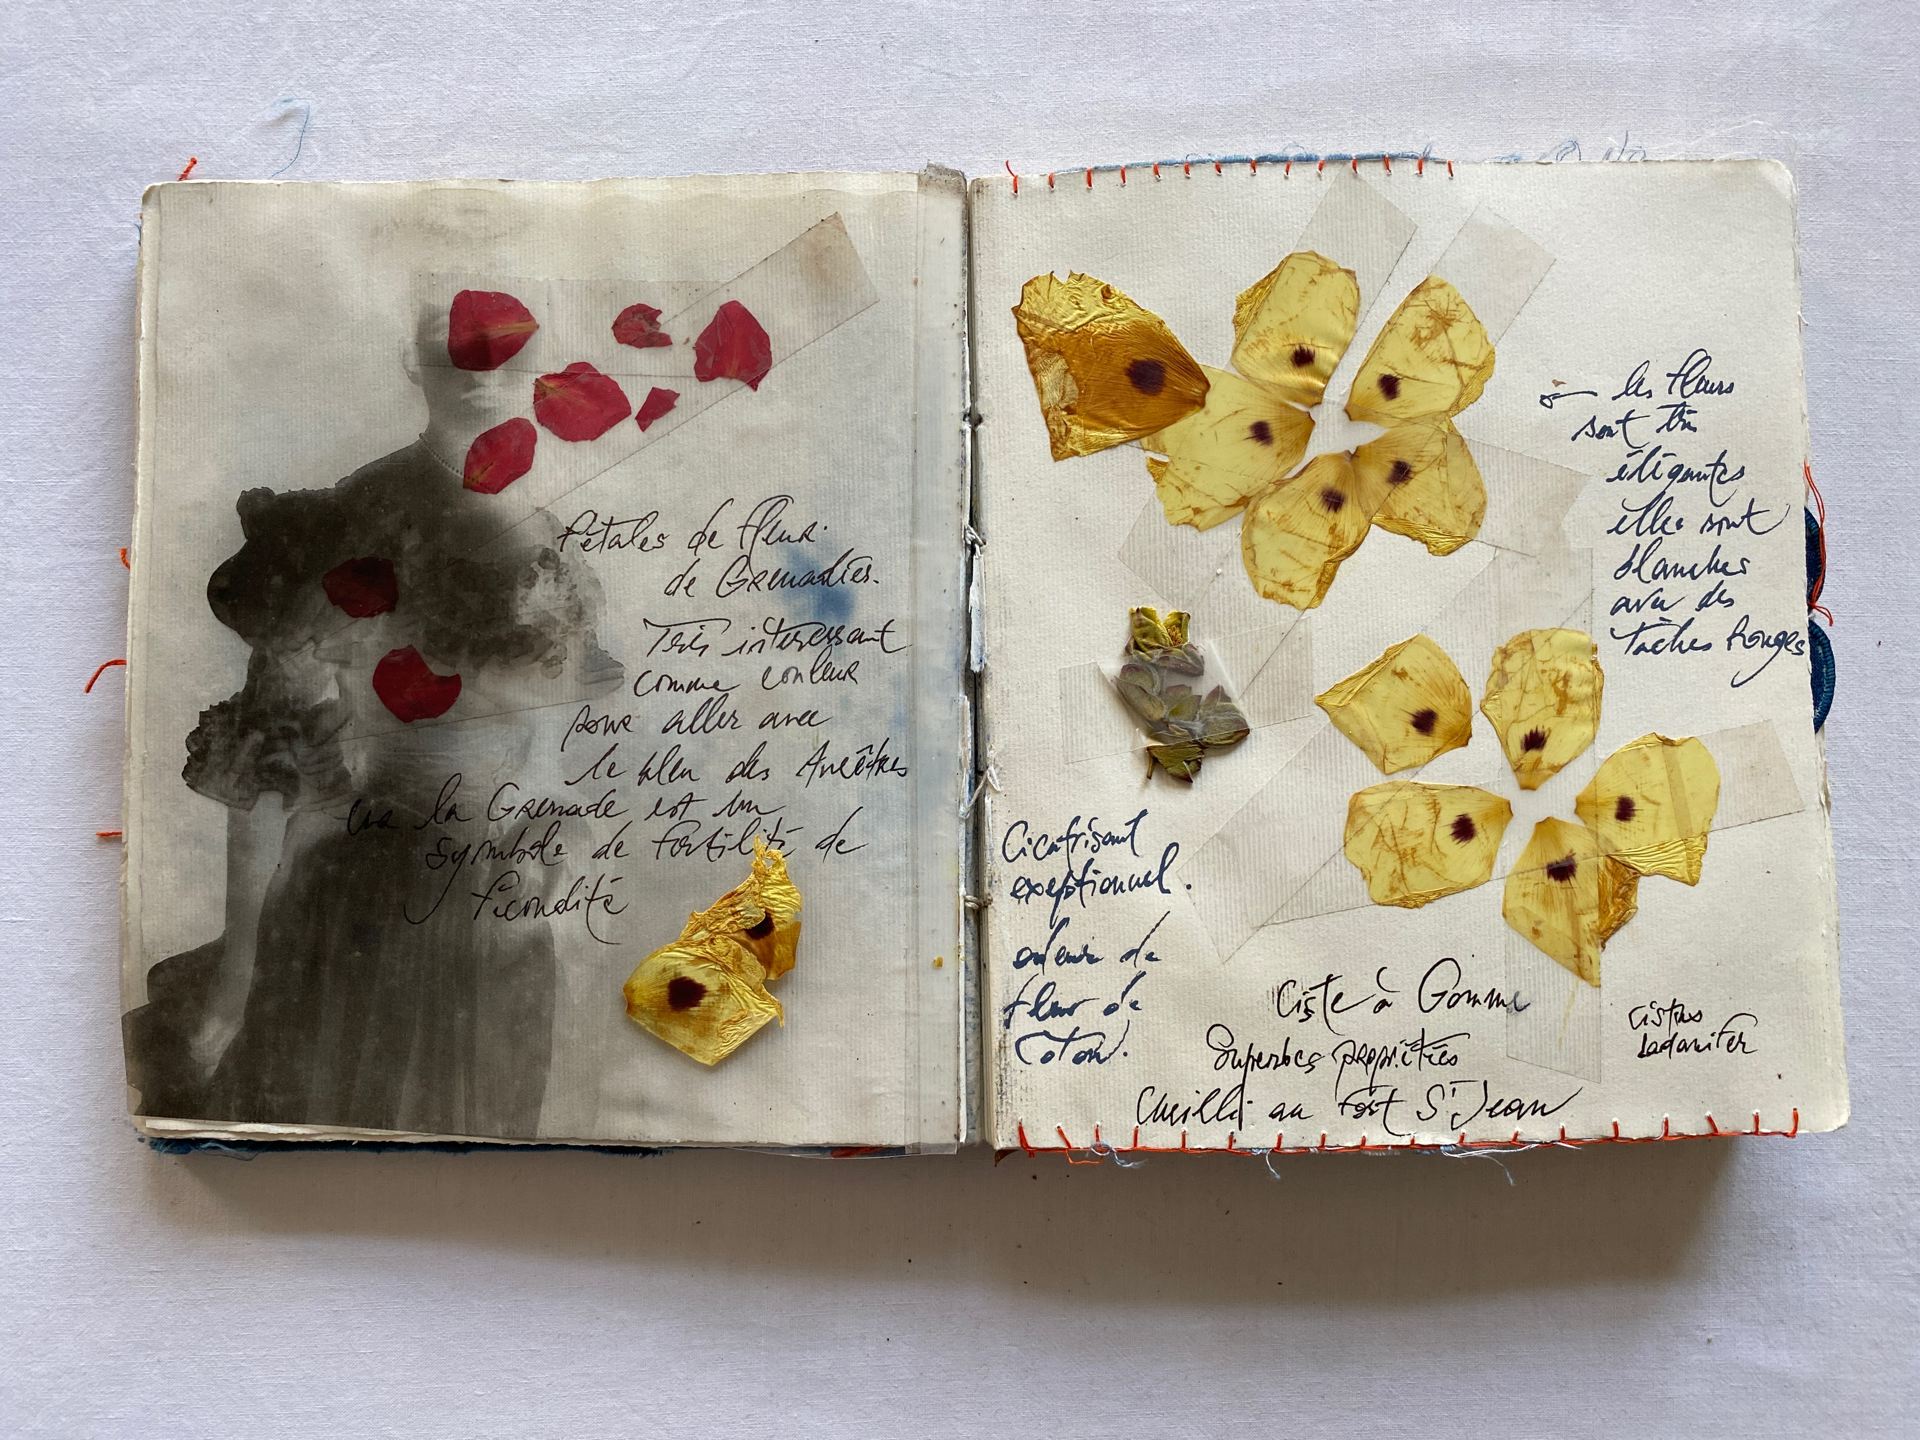 Pétales de fleur
de Grenadier.
Très interessant
comme couleur
pour aller avec
le bleu des Ancêtres
la Grenade est un
symbole de fertilité de
fécondité
les fleurs
sont très
élégantes
elles sont
blanches
avec des
tâches Rouges
Cicatrisant
exeptionnel.
odeur de
fleur de
coton.
Ciste à Gomme
Superbes propriétés
Cueilli au Fort St Jean
Cistus
Ladanifer